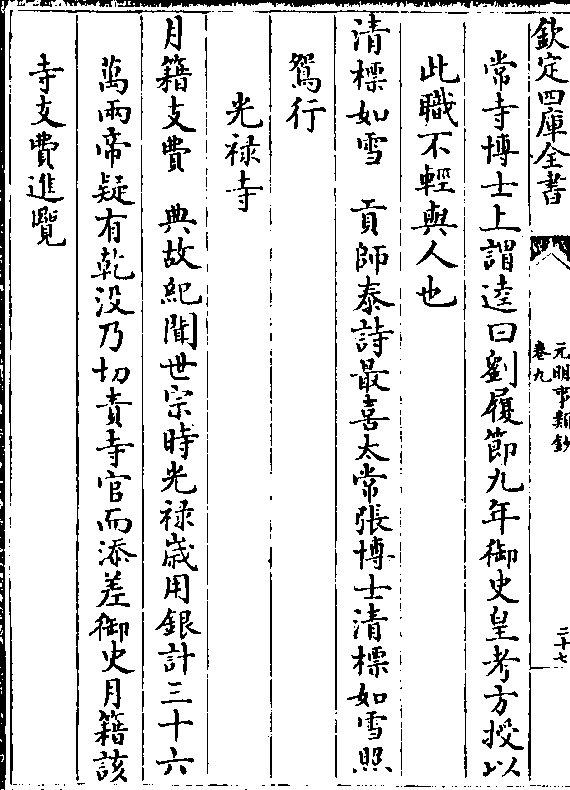 欽定四庫全書
元明事類鈔
卷九
二十七
常寺博士上謂逵曰劉履節九年御史皇考方授以
此職不輕與人也
清標如雪　貢師泰詩最喜太常張博士清標如雪照
鴛行
光禄寺
月籍支費　典故紀聞世宗時光禄歲用銀計三十六
萬兩帝疑有乾没乃切責寺官而添差御史月籍該
寺支費進覽